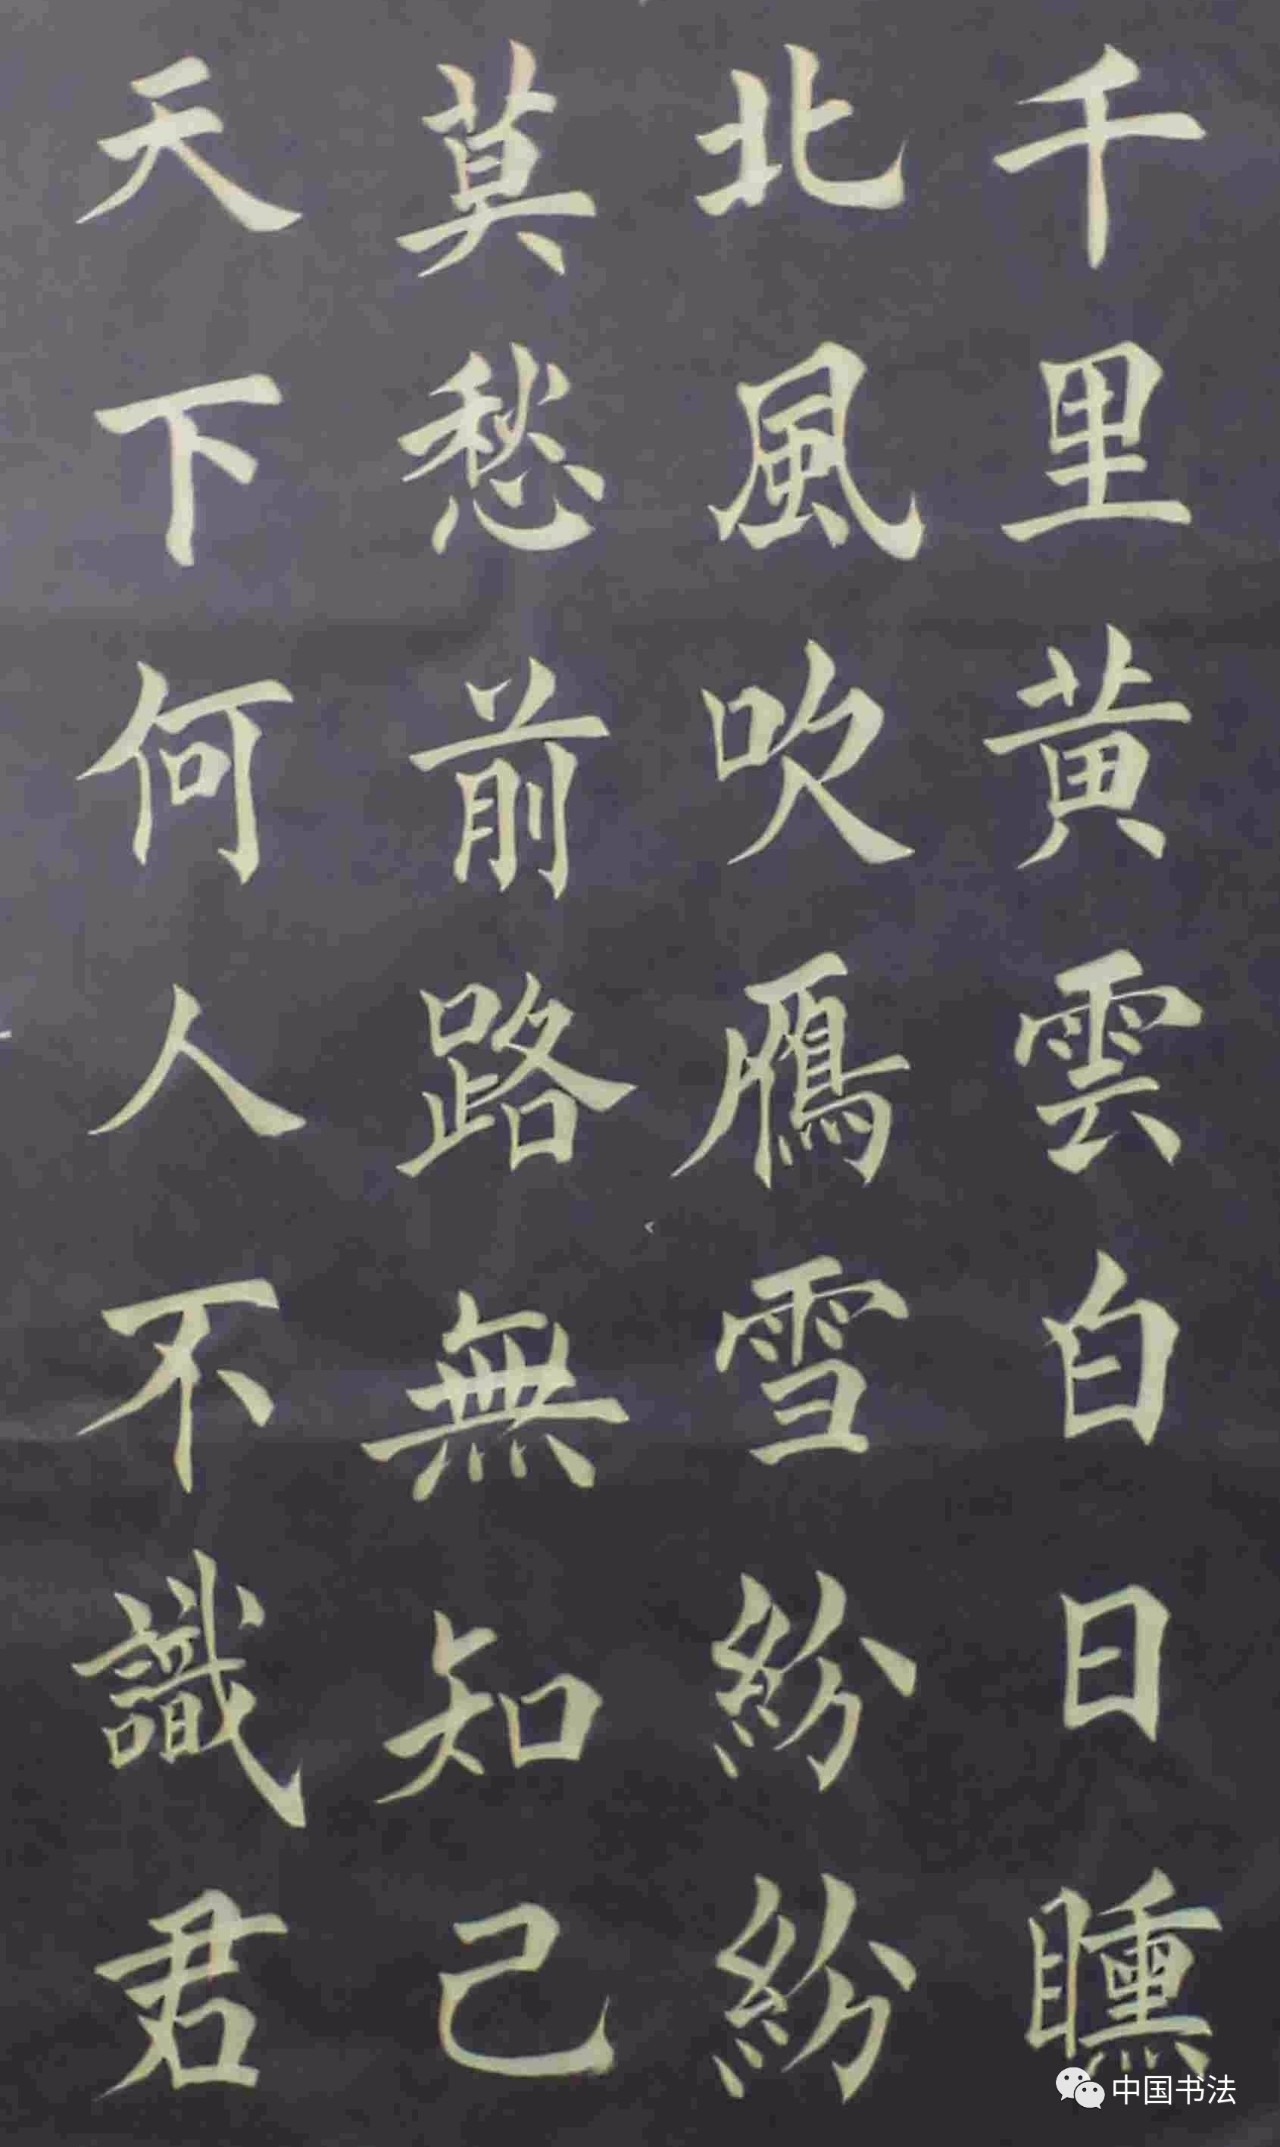 千里黄雲白日曛
北風吹鴈雪紛紛
莫愁前路無知己
天下何人不識君
中国书法